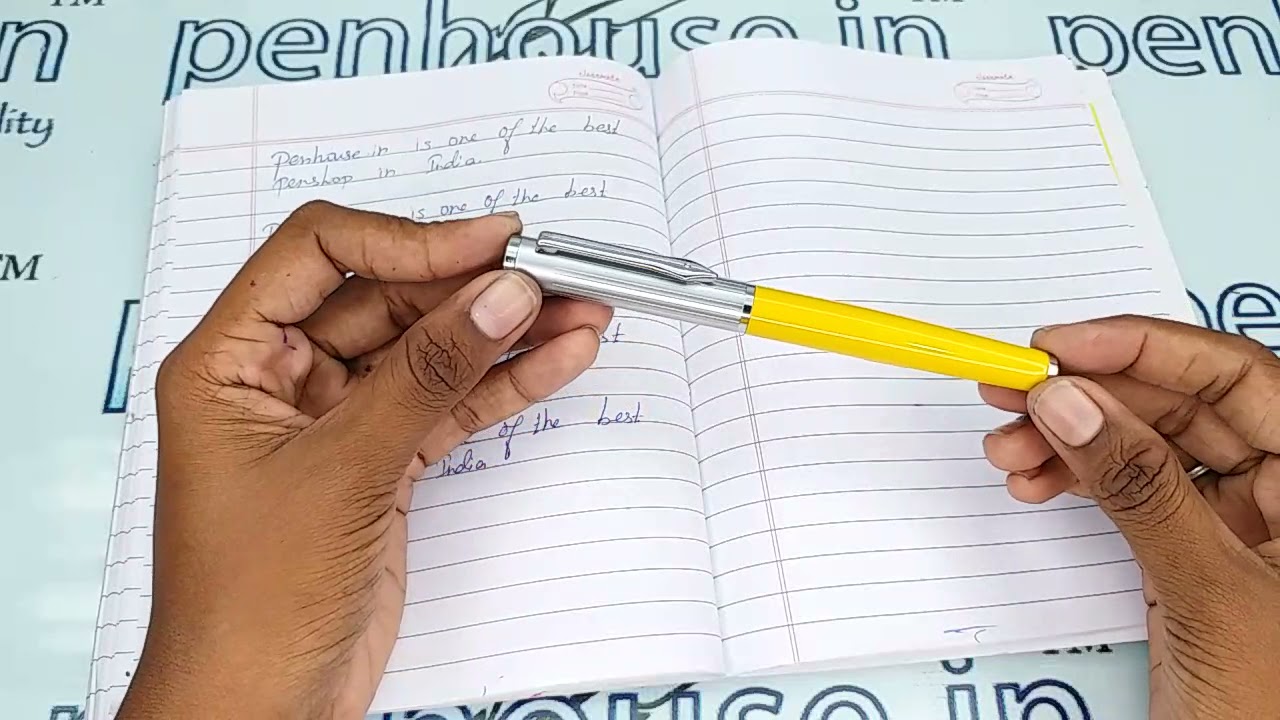 TM TM
n penhouse.in pen
lity
classmate classmate
Penhouse.in is one of the best
penshop in India.
is one of the best
TM
st
of the best
India
TM
penhouse.in